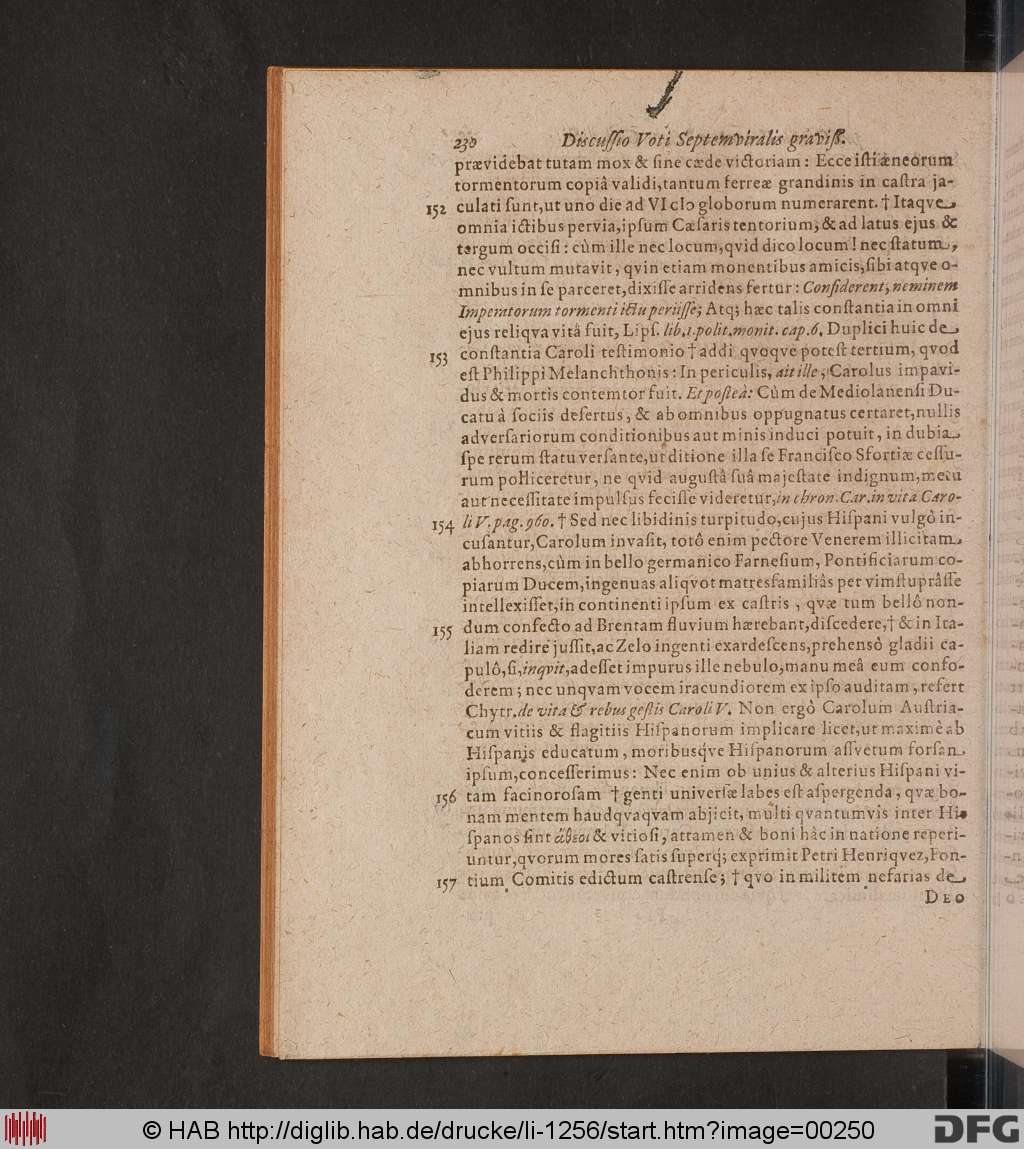 230 Discuſſio Voti Septemviralis graviſſ.
prævidebat tutam mox & ſine cæde victoriam: Ecce iſti æneorum
tormentorum copiâ validi, tantum ferreæ grandinis in caſtra ja-
152 culati ſunt, ut uno die ad VI cIↄ globorum numerarent. † Itaqve
omnia ictibus pervia, ipſum Cæſaris tentorium, & ad latus ejus &
tergum occiſi: cùm ille nec locum, qvid dico locum! nec ſtatum,
nec vultum mutavit, qvin etiam monentibus amicis, ſibi atqve o-
mnibus in ſe parceret, dixiſſe arridens fertur: Confiderent, neminem
Imperatorum tormenti ictu periiſſe; Atq; hæc talis conſtantia in omni
ejus reliqva vitâ fuit, Lipſ. lib. 1. polit. monit. cap. 6. Duplici huic de
153 conſtantia Caroli teſtimonio † addi qvoqve poteſt tertium, qvod
eſt Philippi Melanchthonis: In periculis, ait ille, Carolus impavi-
dus & mortis contemtor fuit. Et poſteà: Cùm de Mediolanenſi Du-
catu à ſociis deſertus, & ab omnibus oppugnatus certaret, nullis
adverſariorum conditionibus aut minis induci potuit, in dubia
ſpe rerum ſtatu verſante, ut ditione illa ſe Franciſco Sfortiæ ceſſu-
rum polliceretur, ne qvid auguſtâ ſuâ majeſtate indignum, metu
aut neceſſitate impulſus feciſſe videretur, in chron. Car. in vita Caro-
154 li V. pag. 960. † Sed nec libidinis turpitudo, cujus Hiſpani vulgô in-
cuſantur, Carolum invaſit, totô enim pectore Venerem illicitam
abhorrens, cùm in bello germanico Farneſium, Pontificiarum co-
piarum Ducem, ingenuas aliqvot matresfamiliâs per vim ſtuprâſſe
intellexiſſet, in continenti ipſum ex caſtris, qvæ tum bellô non-
155 dum confecto ad Brentam fluvium hærebant, diſcedere, † & in Ita-
liam redire juſſit, ac Zelo ingenti exardeſcens, prehensô gladii ca-
pulô, ſi, inqvit, adeſſet impurus ille nebulo, manu meâ eum confo-
derem; nec unqvam vocem iracundiorem ex ipſo auditam, refert
Chytr. de vita & rebus geſtis Caroli V. Non ergò Carolum Auſtria-
cum vitiis & flagitiis Hiſpanorum implicare licet, ut maximè ab
Hiſpanis educatum, moribusq́ve Hiſpanorum aſſvetum forſan
ipſum, conceſſerimus: Nec enim ob unius & alterius Hiſpani vi-
156 tam facinoroſam † genti univerſæ labes eſt aſpergenda, qvæ bo-
nam mentem haudqvaqvam abjicit, multi qvantumvis inter Hi-
ſpanos ſint ἄθεοι & vitioſi, attamen & boni hâc in natione reperi-
untur, qvorum mores ſatis ſuperq́; exprimit Petri Henriqvez, Fon-
157 tium Comitis edictum caſtrenſe; † qvo in militem nefarias de
DEO
© HAB http://diglib.hab.de/drucke/li-1256/start.htm?image=00250
DFG